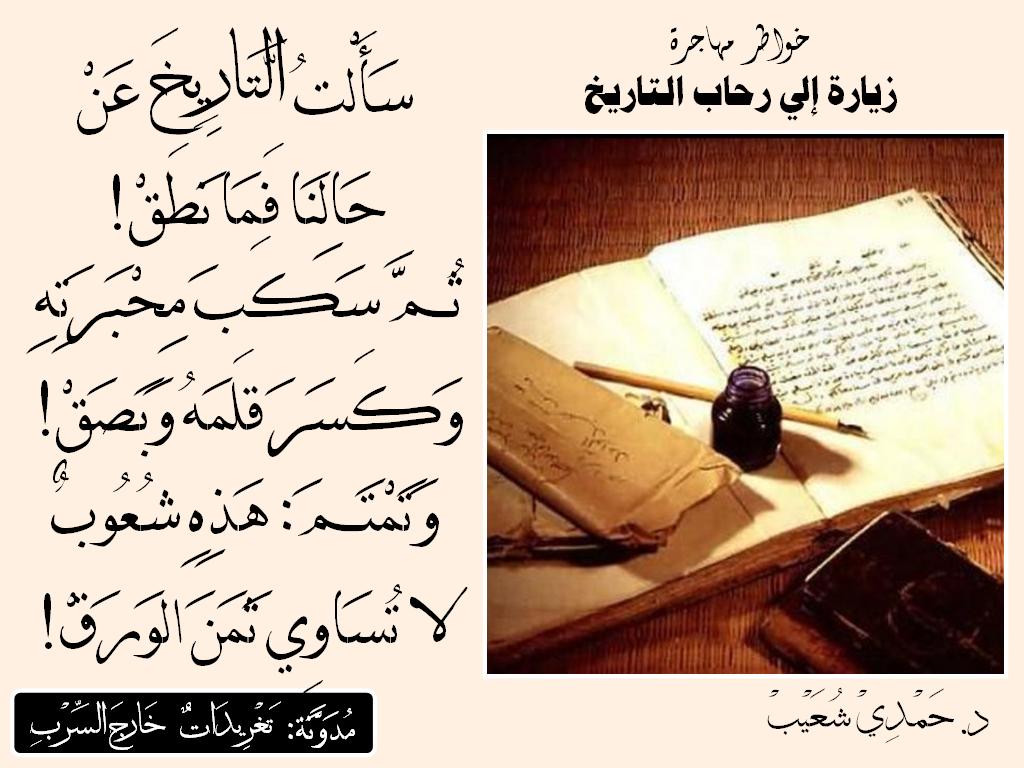 خواطر مهاجرة
زيارة إلي رحاب التاريخ
سَأَلتُ التَّارِيخَ عَنْ
حَالَنَا فَمَا نَطَقْ!
ثُمَّ سَكَبَ مِحْبَرَتِهِ
وَكَسَرَ قَلَمَهُ وَبَصَقْ!
وَتَمْتَمَ: هَذِهِ شُعُوبٌ
لا تُسَاوِي ثَمَنَ الوَرَقْ!
مُدَوَّنَة: تَغْرِيدَاتٌ خَارِجَ السِّرْبِ
د. حَمْدِيْ شُعَيْبْ